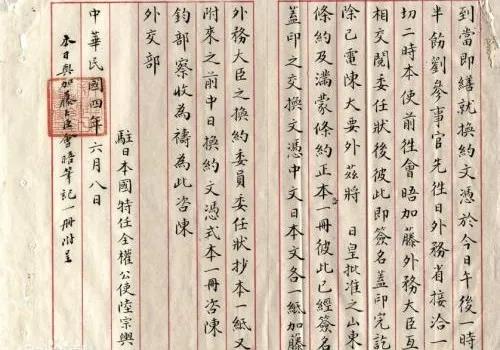 到當即繕就換約文憑於今日午後一時
半飭劉參事官先徃日外務省接洽一
切二時本使前徃會晤加藤外務大臣互
相交閱委任狀後彼此即簽名蓋印完訖
除已電陳大要外茲將 日皇批准之山東
條約及滿蒙條約正本一冊彼此已經簽名
蓋印之交換文憑中文日本文各一紙加藤
外務大臣之換約委員委任狀抄本一紙又
附來之前中日換約文憑式本一冊咨陳
鈞部察收為禱為此咨陳
外交部
駐日本國特任全權公使陸宗輿
中華民國四年六月八日
本日與加藤大臣會晤筆記一冊附呈